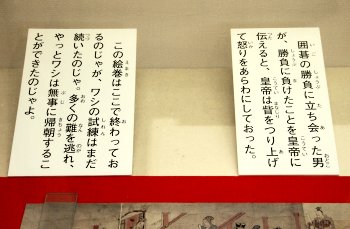 囲碁の勝負に立ち会った男
が、勝負に負けたことを皇帝に
伝えると、皇帝は眥をつり上げ
て怒りをあらわにしておった。
この絵巻はここで終わってお
るのじゃが、ワシの試練はまだ
続いたのじゃ。多くの難を逃れ、
やっとワシは無事に帰朝するこ
とができたのじゃよ。